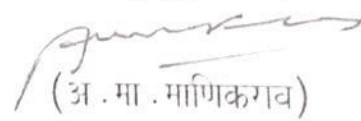 (अ . मा . माणिकराव)